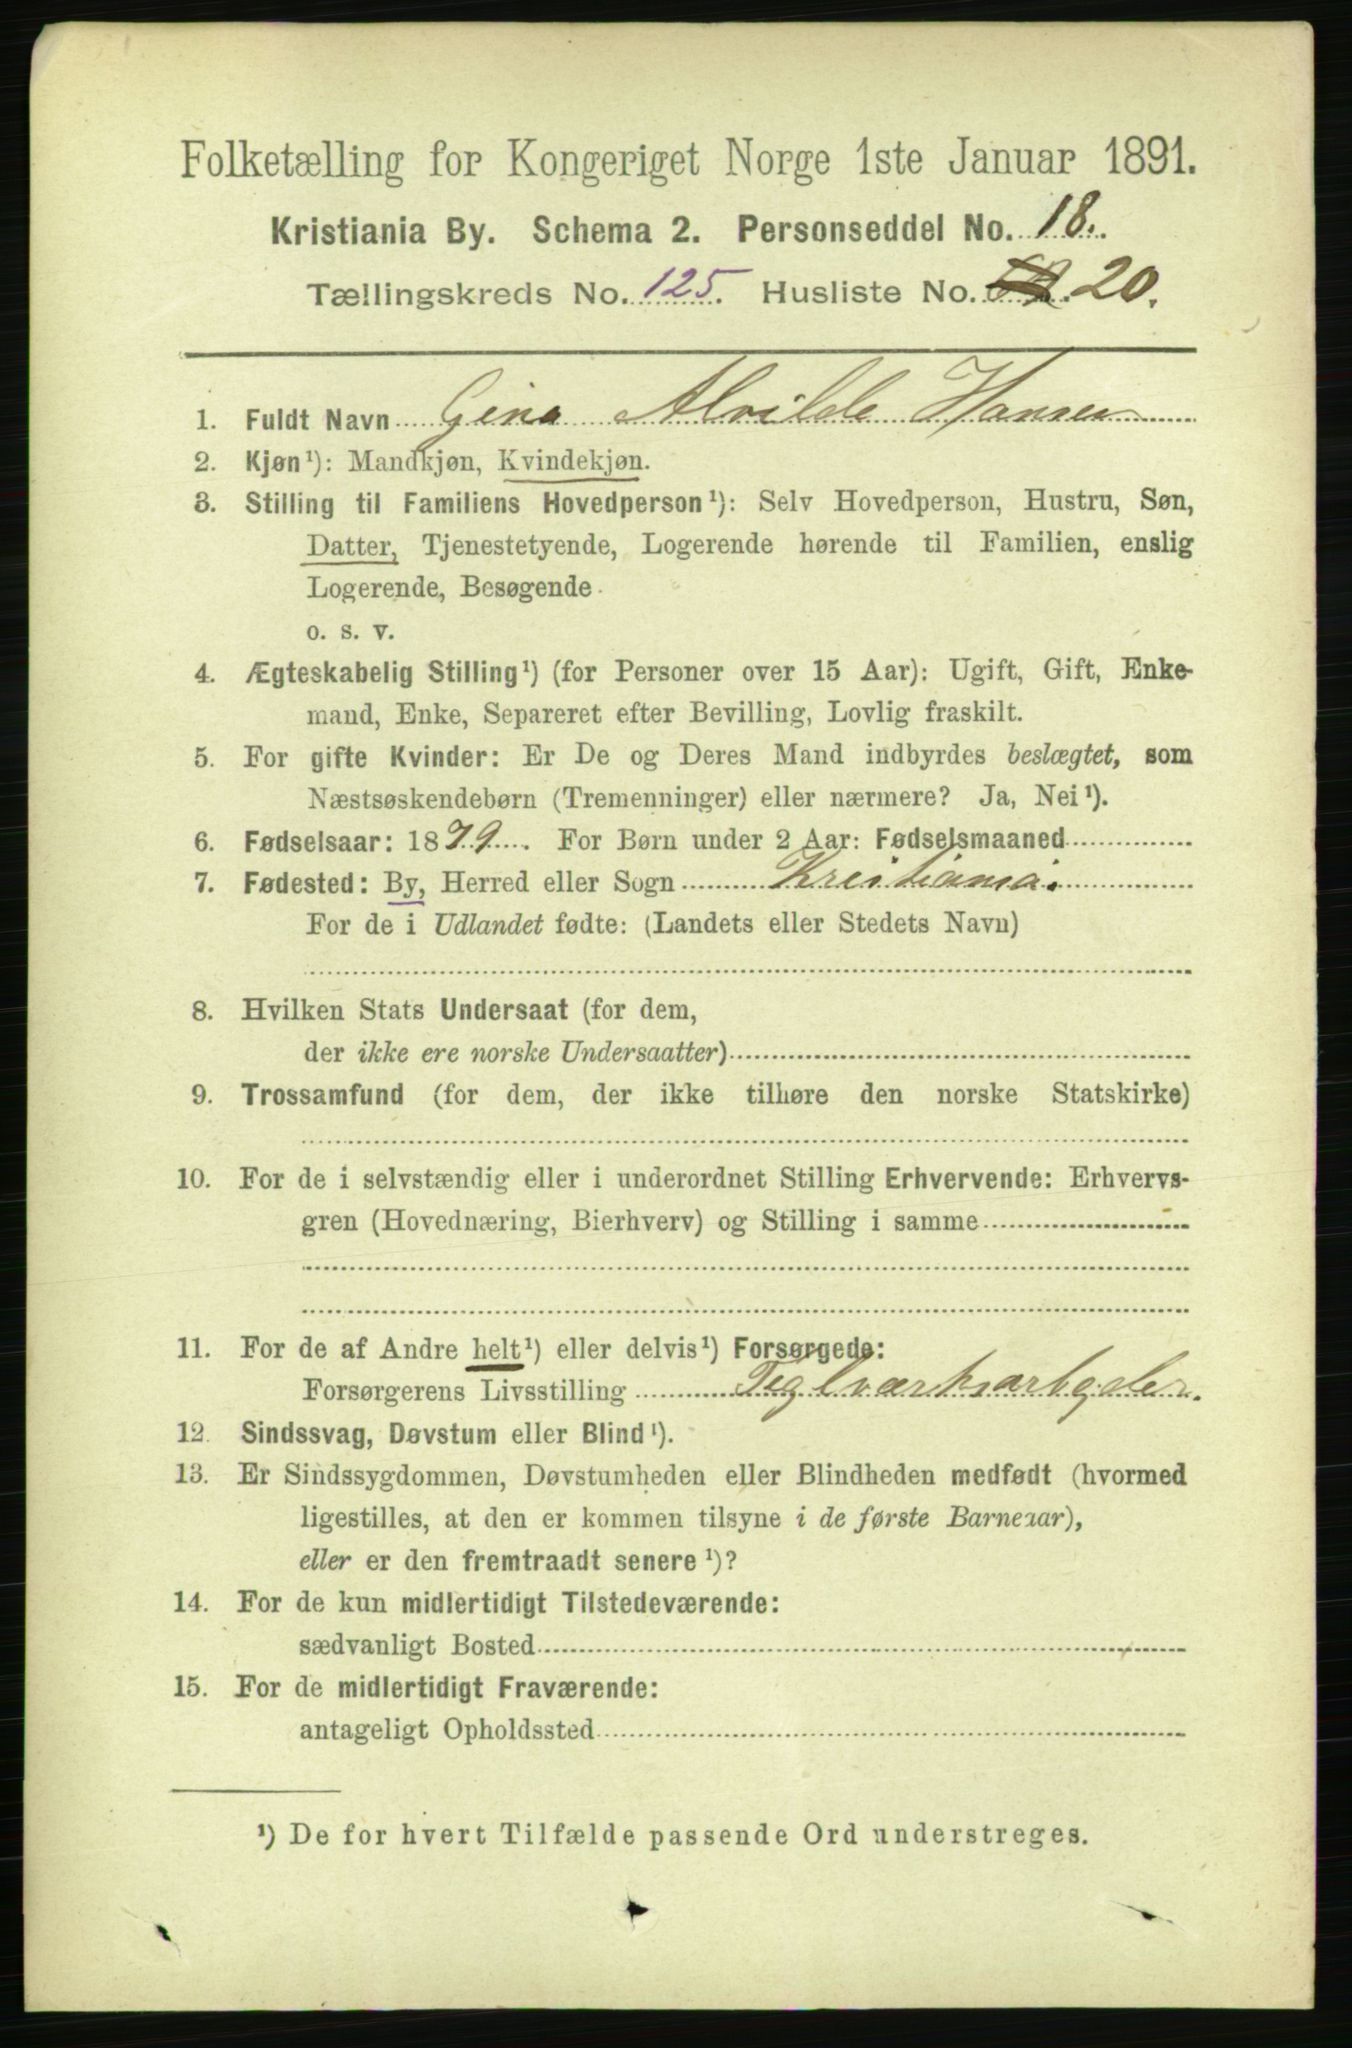 Folketælling for Kongeriget Norge 1ste Januar 1891.
Kristiania By. Schema 2. Personseddel No. 18.
Tællingskreds No. 125. Husliste No. 20.
1. Fuldt Navn Gina Alvilde Hansen
2. Kjøn¹): Mandkjøn, Kvindekjøn.
3. Stilling til Familiens Hovedperson¹): Selv Hovedperson, Hustru, Søn,
Datter, Tjenestetyende, Logerende hørende til Familien, enslig
Logerende, Besøgende
o. s. v.
4. Ægteskabelig Stilling¹) (for Personer over 15 Aar): Ugift, Gift, Enke-
mand, Enke, Separeret efter Bevilling, Lovlig fraskilt.
5. For gifte Kvinder: Er De og Deres Mand indbyrdes beslægtet, som
Næstsøskendebørn (Tremenninger) eller nærmere? Ja, Nei¹).
6. Fødselsaar: 1879. For Børn under 2 Aar: Fødselsmaaned
7. Fødested: By, Herred eller Sogn Kristiania.
For de i Udlandet fødte: (Landets eller Stedets Navn)
8. Hvilken Stats Undersaat (for dem,
der ikke ere norske Undersaatter)
9. Trossamfund (for dem, der ikke tilhøre den norske Statskirke)
10. For de i selvstændig eller i underordnet Stilling Erhvervende: Erhvervs-
gren (Hovednæring, Bierhverv) og Stilling i samme
11. For de af Andre helt¹) eller delvis¹) Forsørgede:
Forsørgerens Livsstilling Teglværksarbeder.
12. Sindssvag, Døvstum eller Blind¹).
13. Er Sindssygdommen, Døvstumheden eller Blindheden medfødt (hvormed
ligestilles, at den er kommen tilsyne i de første Barneaar),
eller er den fremtraadt senere¹)?
14. For de kun midlertidigt Tilstedeværende:
sædvanligt Bosted
15. For de midlertidigt Fraværende:
antageligt Opholdssted
¹) De for hvert Tilfælde passende Ord understreges.